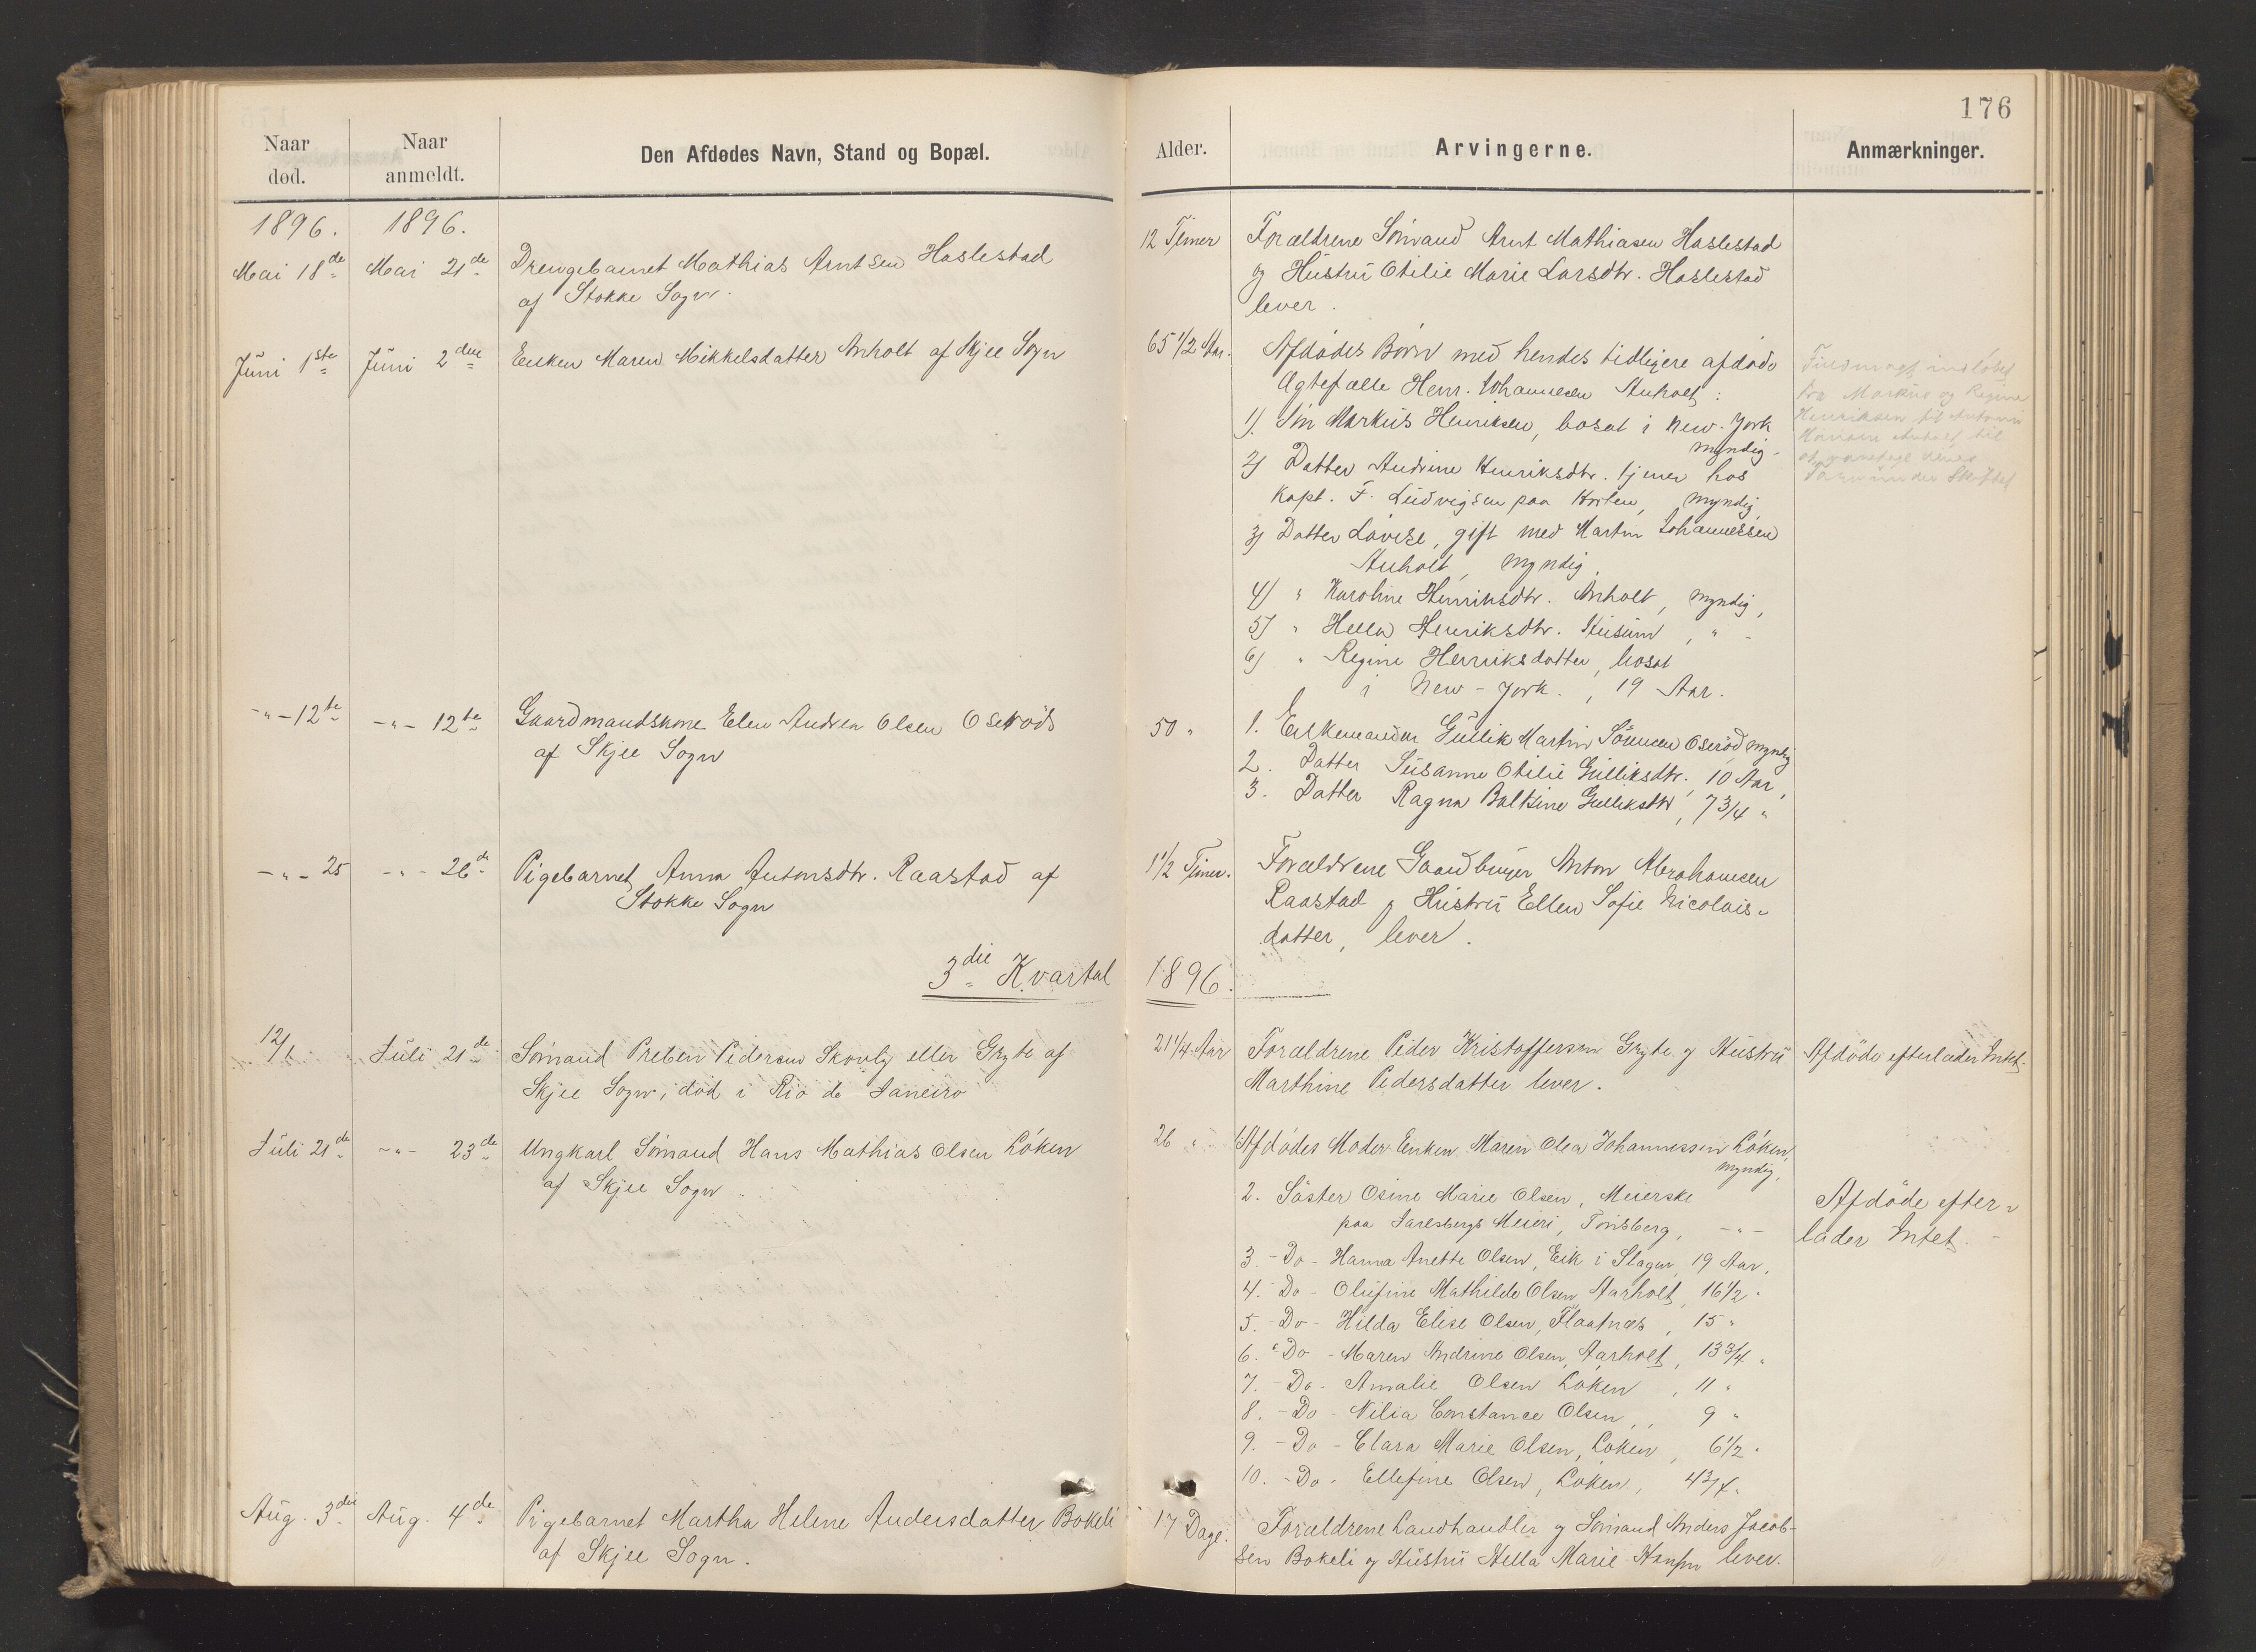 176
Naar død.
Naar anmeldt.
Den Afdødes Navn, Stand og Bopæl.
Alder.
Arvingerne.
Anmærkninger.
1896.
1896.
Mai 18de
Mai 21de
Drengebarnet Mathias Arntsen Haslestad
af Stokke Sogn.
12 Timer
Forældrene Sømand Arnt Mathiasen Haslestad
og Hustru Otilie Marie Larsdtr. Haslestad
lever.
Juni 1ste
Juni 2den
Enken Maren Mikkelsdatter Anholt af Skjee Sogn
65 1/2 Aar.
Afdødes Børn med hendes tidligere afdøde
Ægtefælle Henr. Johannesen Anholt:
1). Søn Markus Henriksen, bosat i New-York
myndig.
2) Datter Andrine Henriksdtr. tjener hos
Kapt. F. Ludvigsen paa Horten, myndig,
3) Datter Lovise, gift med Martin Johannessen
Anholt, myndig,
4) " Karoline Henriksdtr. Anholt, myndig,
5) " Hella Henriksdtr. Husum, " -
6) " Regine Henriksdatter, bosat
i New-York., 19 Aar.
Markus og Regine
Henriksen til
-"- 12te
-"- 12te
Gaardmandskone Elen Andrea Olsen Oserød
af Skjee Sogn
50 "
1. Enkemanden Gullik Martin Sørensen Oserød myndig
2. Datter Susanne Otilie Gulliksdtr. 10 Aar,
3. Datter Ragna Baltsine Gulliksdtr, 7 3/4 "
-"- 25
-"- 26de
Pigebarnet Anna Antonsdtr. Raastad af
Stokke Sogn
1 1/2 Timer.
Forældrene Gaardbruger Anton Abrahamsen
Raastad og Hustru Ellen Sofie Nicolais-
datter, lever.
3die Kvartal 1896.
12/1
Juli 21de
Sømand Preben Pedersen Skovly eller Gryte af
Skjee Sogn, død i Rio de Janeiro
21 1/4 Aar
Forældrene Peder Kristoffersen Gryte og Hustru
Marthine Pedersdatter lever.
Afdøde efterlader Intet.
Juli 21de
-"- 23de
Ungkarl Sømand Hans Mathias Olsen Løken
af Skjee Sogn
26 "
1. Afdødes Moder Enken Maren Olea Johannessen Løken,
myndig,
2. Søster Osine Marie Olsen, Meierske
paa Jarlsbergs Meieri, Tønsberg, -"-
3. - Do - Hanna Anette Olsen, Eik i Slagen, 19 Aar,
4. - Do - Olufine Mathilde Olsen Aarholt, 16 1/2 "
5. - Do - Hilda Elise Olsen, Flaatnæs, 15 "
6. - Do - Maren Andrine Olsen, Aarholt, 13 3/4 "
7. - Do - Amalie Olsen Løken, 11 "
8. - Do - Nilia Constance Olsen, , 9 "
9. - Do - Clara Marie Olsen, Løken, 6 1/2 "
10. - Do - Ellefine Olsen, Løken, 4 3/4 "
Afdøde efter-
lader Intet. -
Aug. 3die
Aug. 4de
Pigebarnet Martha Helene Andersdatter Bokeli
af Skjee Sogn.
17 Dage.
Forældrene Landhandler og Sømand Anders Jacob-
sen Bokeli og Hustru Hella Marie Hansen lever.